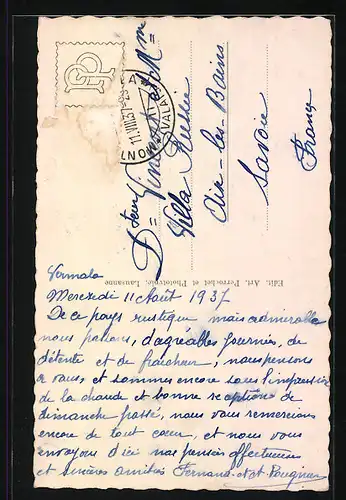 11.VIII.37
Dteur Vincent & Mme
Villa
Aix-les-Bains
Savoie
France
Edit. Art. Perrochet et Phototypie, Lausanne
Vermala
Mercredi 11 Août 1937
De ce pays rustique mais admirable
nous passons, d'agréables journées, de
détente et de fraicheur, nous pensons
à vous, et sommes encore sous l'impression
de la chaude et bonne réception de
dimanche passé, nous vous remercions
encore de tout cœur, et nous vous
envoyons d'ici nos pensées affectueuses
et sincères amitiés Fernand et